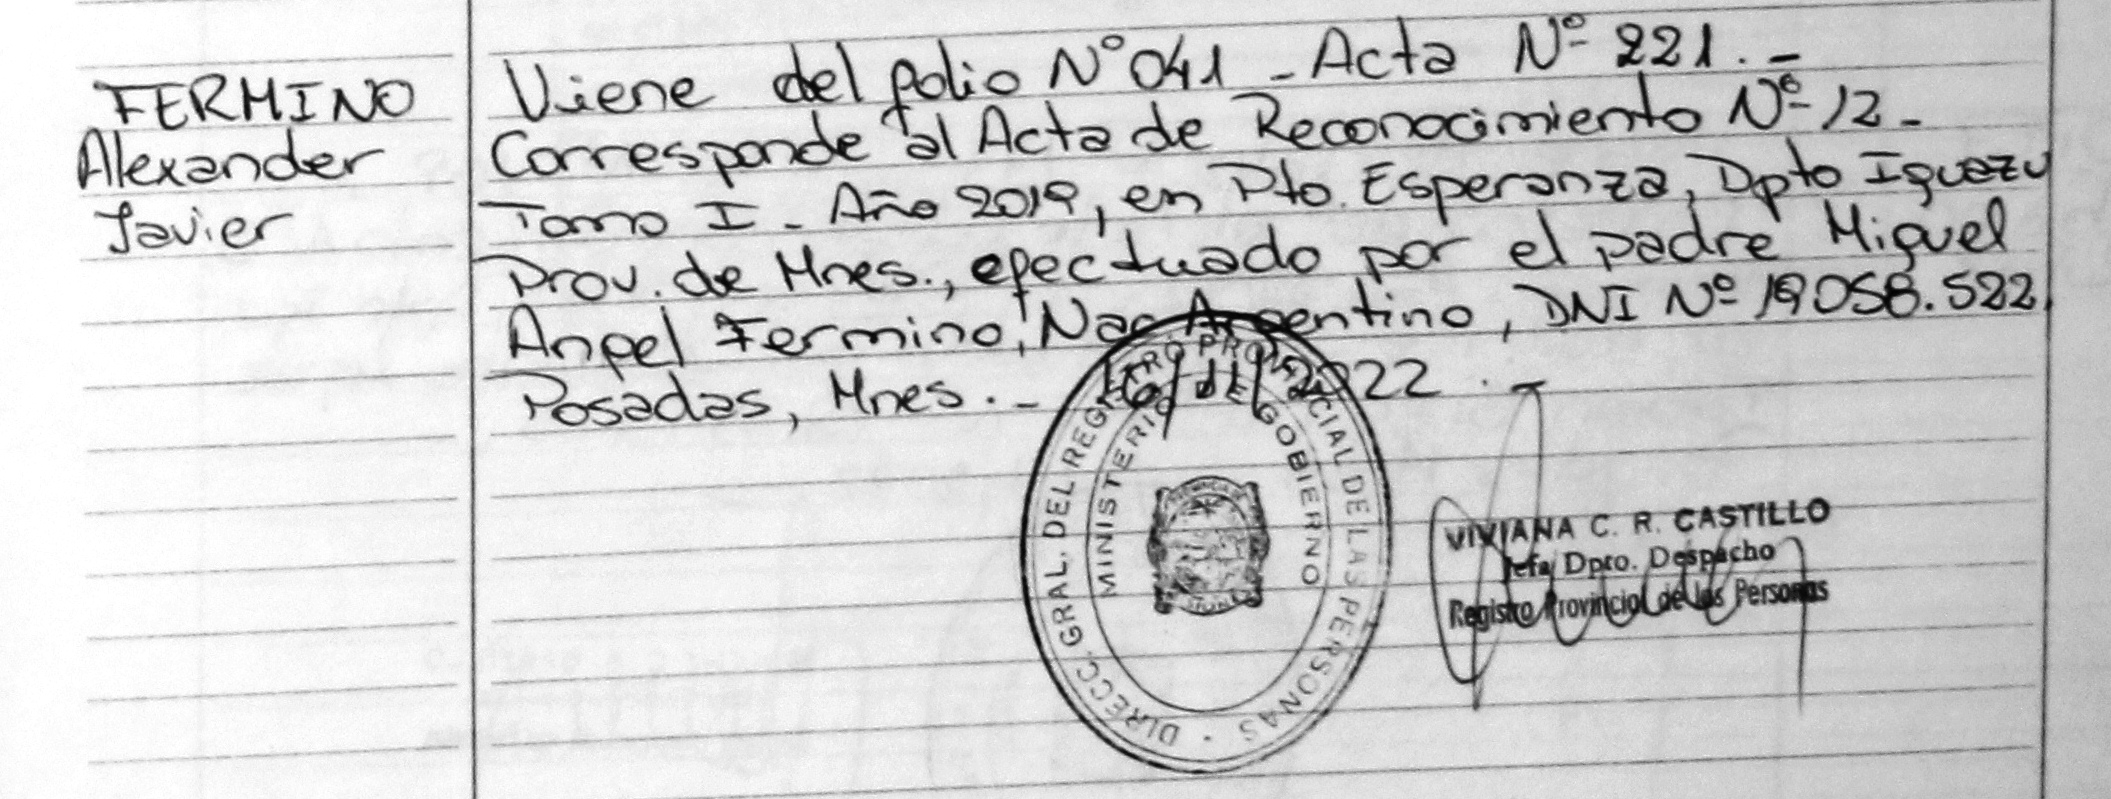 FERMINO
Alexander
Javier
Viene del folio N° 041 - Acta Nº 221. -
Corresponde al Acta de Reconocimiento Nº 12 -
Tomo I - Año 2019, en Pto. Esperanza, Dpto Iguazu
Prov. de Mnes., efectuado por el padre Miguel
Angel Fermino, Nac Argentino, DNI Nº 19058.522,
Posadas, Mnes. - 2022 . -
DIRECC. GRAL. DEL REGISTRO PROVINCIAL DE LAS PERSONAS
MINISTERIO DE GOBIERNO
VIVIANA C. R. CASTILLO
Jefa Dpto. Despacho
Registro Provincial de las Personas